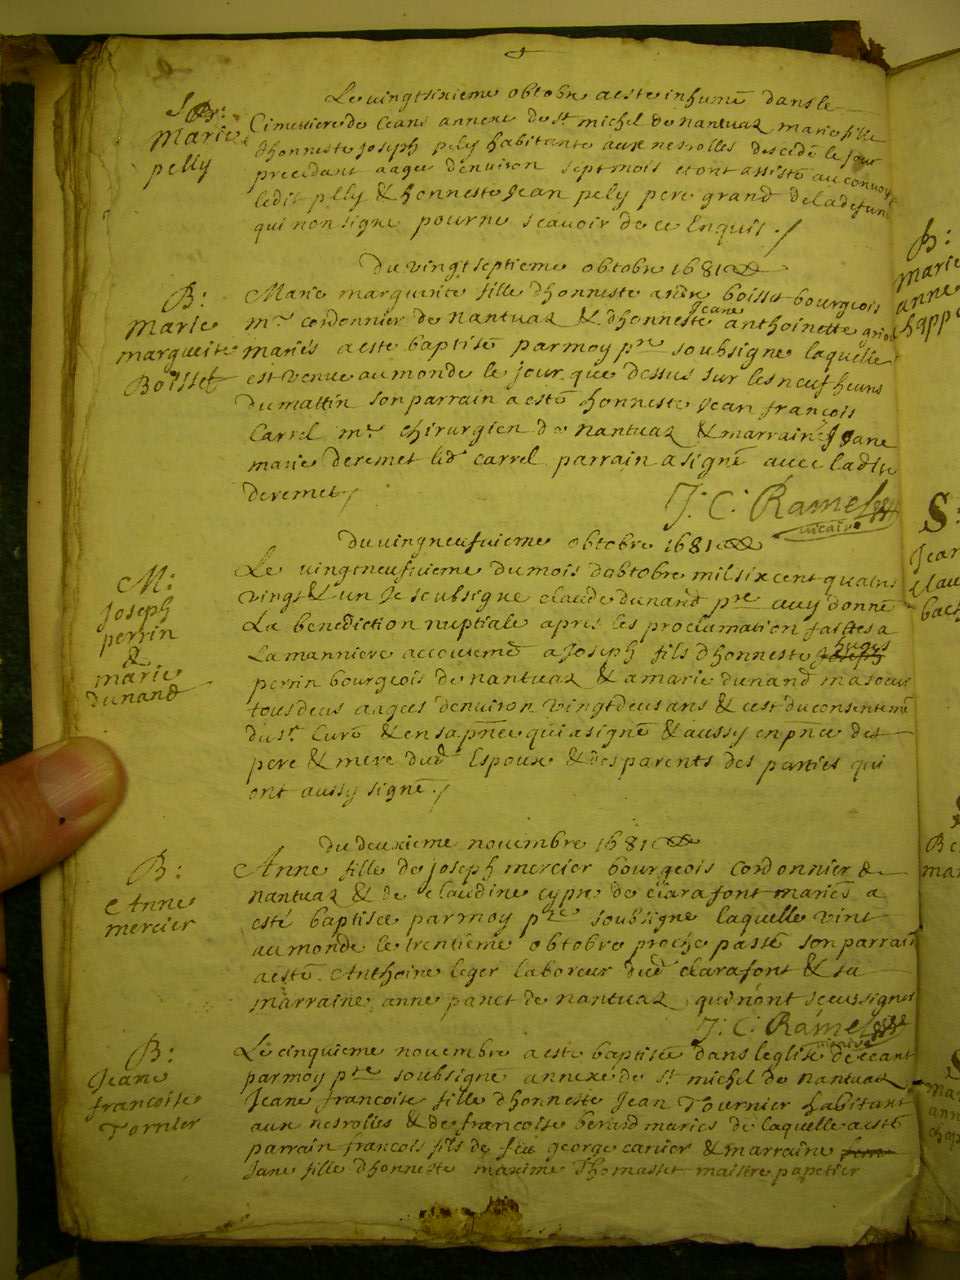 Sr:
Marie
pelly
Le vingtsixieme obtobre a este inhume dans le
Cimettiere de Ceans annexe de st michel de nantuaz marie fille
dhonneste joseph pely habitante aux nesrolles descedé le jour
precedant aagee denviron sept mois et ont assisté au convoy
ledit pelly & honneste Jean pely pere grand de la defun
qui non signe pour ne scavoir de ce Enquis ./
Du vingtseptieme obtobre 1681
B:
Marie
marguerite
Boisset
Marie marguerite fille dhonneste andre boisset bourgeois
mre cordonnier de nantuaz & dhonneste Jeane anthoinette
mariés a este baptisé par moy pre soubsigne laquelle
est venue au monde le jour que dessus sur les neuf heures
du mattin son parrain a esté honneste Jean françois
Carrel mre chirurgien de nantuaz & marraine Jane
marie deremet led carrel parrain a signé avec ladte
deremet /
J: C: Ramel
vicaire
Du vingneufvieme obtobre 1681
M:
Joseph
perrin
&
marie
dunand
Le vingtneufvieme du mois dobtobre mil six cent quatre
vingt & un Je soubsigne claude dunand pre ay donné
La benediction nuptiale apres les proclamation faittes a
La manniere accoutumé a Joseph fils dhonneste
perrin bourgeois de nantuaz & a marie dunand ma soeur
tous deus aagees denviron vingt deus ans & c'est du consenteme
du sr Curé & en sa pnce qui a signé & aussy en pnce des
pere & mere dud Espoux & des parents des parties qui
ont aussy signé ./
du deuxieme novembre 1681
B:
Anne
mercier
Anne fille de joseph mercier bourgeois cordonnier de
nantuaz & de claudine cypre de ciarafont maries a
esté baptisée par moy pre soubsigne laquelle vint
au monde le trentieme obtobre proche passé son parrain
a esté Anthoine leger laboreur dud clarafont & sa
marraine anne panet de nantuaz qui nont sceu signer
J: C: Ramel
vicaire
B:
Jeane
francoise
Tornier
Le cinquieme novembre a este baptisée dans leglise de ceant
par moy pre soubsigne annexe de st michel de nantuaz
Jeane francoise fille dhonneste Jean Tournier habitant
aux nesrolles & de francoise berard maries de laquelle a esté
parrain francois fils de feu george carrier & marraine
Jane fille dhonneste maxime Thomasset maistre papetier
B:
marie
anne
chapp
S:
Jean
clau
bach